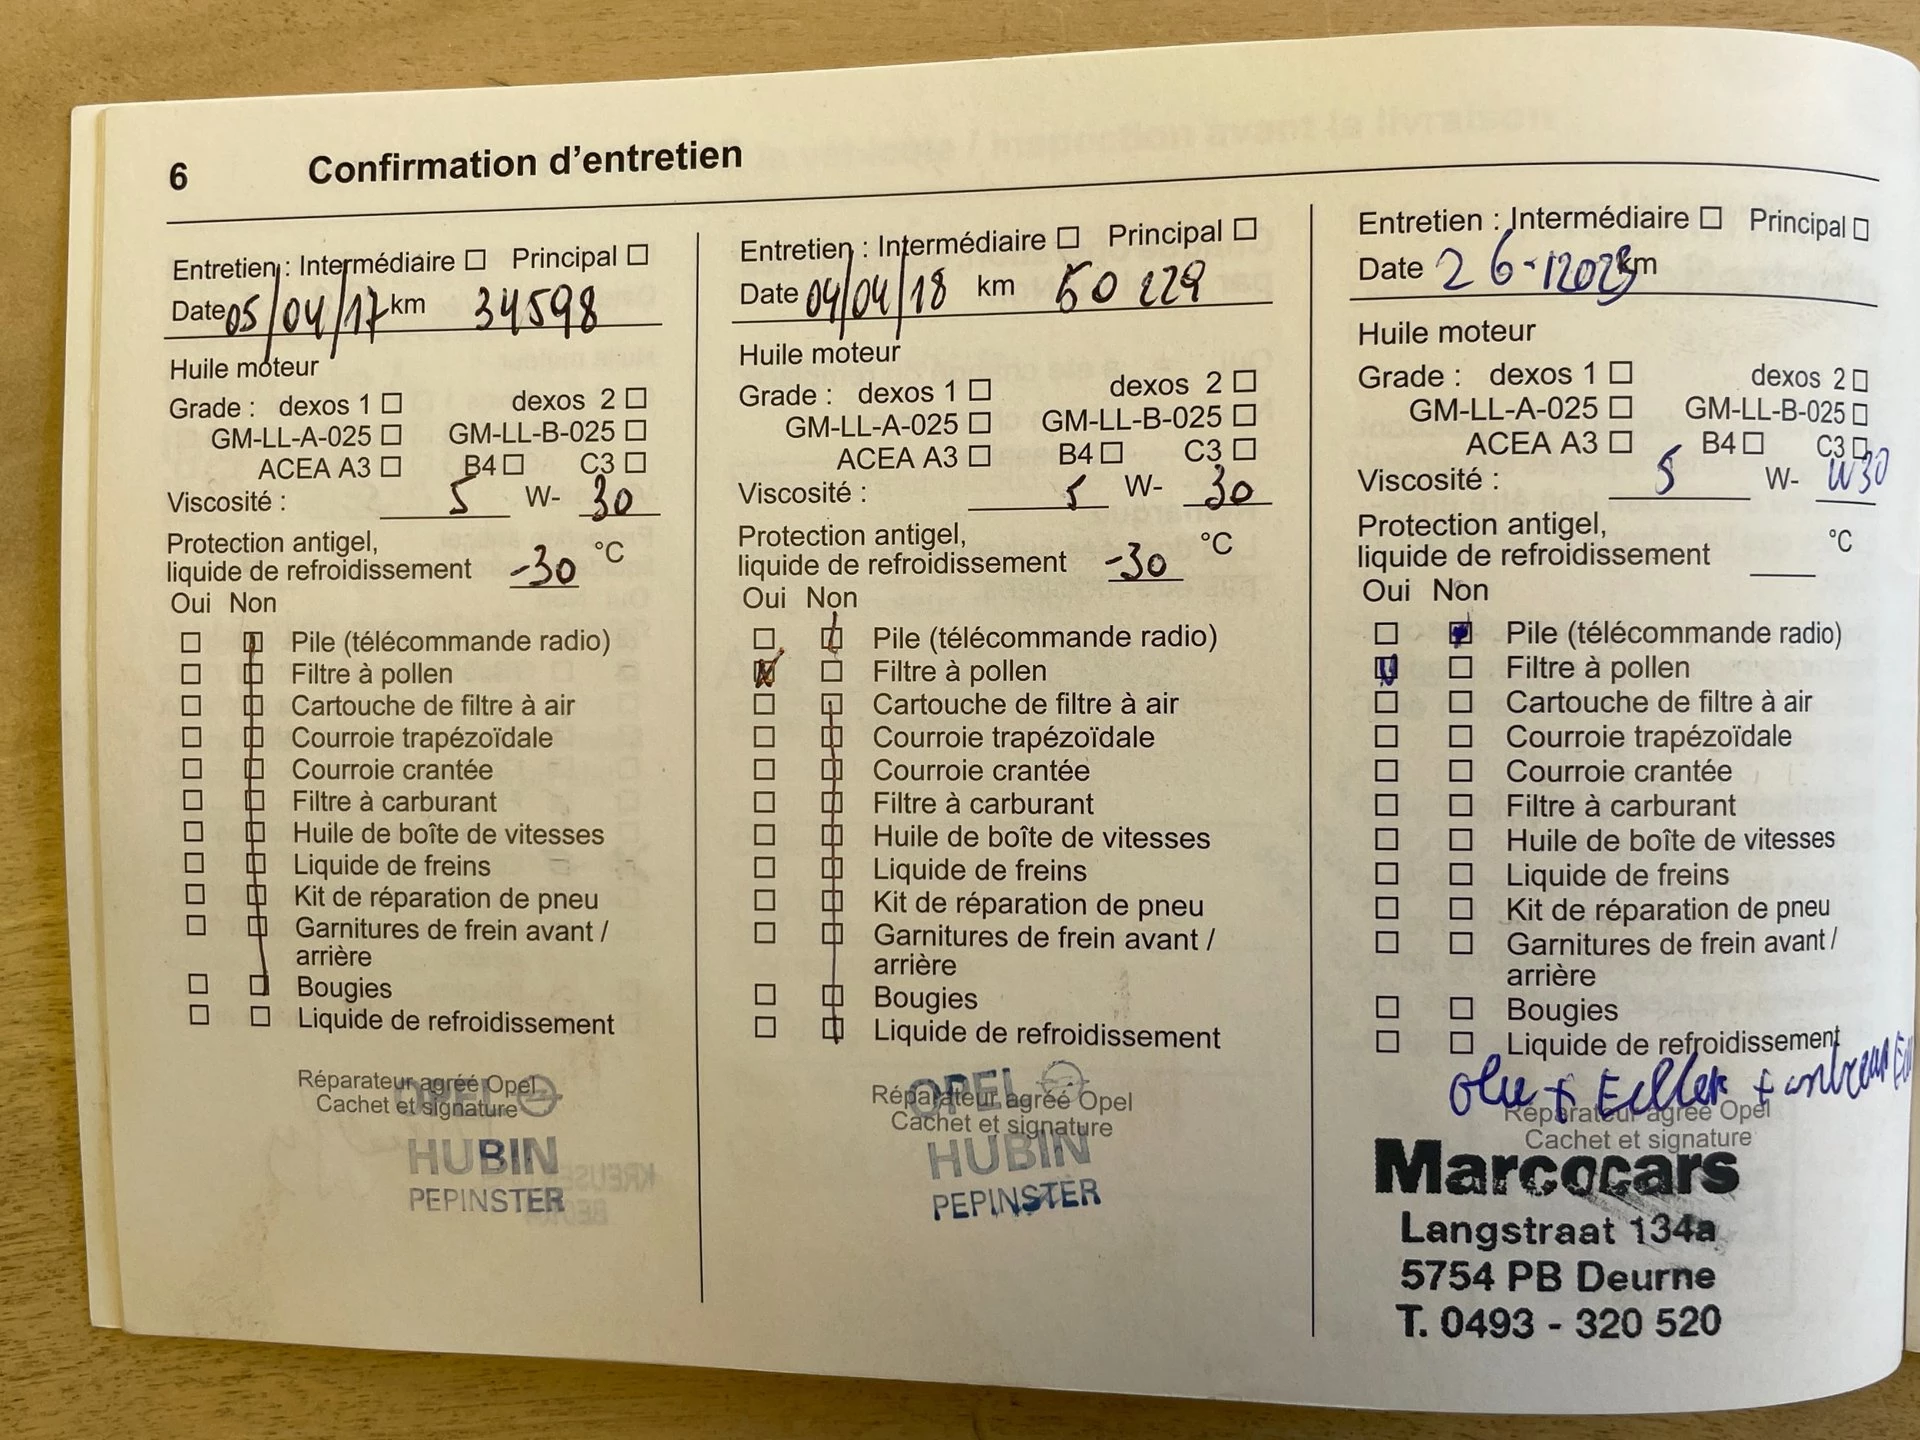 6 Confirmation d'entretien
Entretien : Intermédiaire ☐ Principal ☐
Date 05/04/17 km 34598
Huile moteur
Grade : dexos 1 ☐ dexos 2 ☐
GM-LL-A-025 ☐ GM-LL-B-025 ☐
ACEA A3 ☐ B4 ☐ C3 ☐
Viscosité : 5 W- 30
Protection antigel,
liquide de refroidissement -30 °C
Oui Non
Pile (télécommande radio)
Filtre à pollen
Cartouche de filtre à air
Courroie trapézoïdale
Courroie crantée
Filtre à carburant
Huile de boîte de vitesses
Liquide de freins
Kit de réparation de pneu
Garnitures de frein avant /
arrière
Bougies
Liquide de refroidissement
Réparateur agréé Opel
Cachet et signature
OPEL
HUBIN
PEPINSTER
Entretien : Intermédiaire ☐ Principal ☐
Date 04/04/18 km 50229
Huile moteur
Grade : dexos 1 ☐ dexos 2 ☐
GM-LL-A-025 ☐ GM-LL-B-025 ☐
ACEA A3 ☐ B4 ☐ C3 ☐
Viscosité : 5 W- 30
Protection antigel,
liquide de refroidissement -30 °C
Oui Non
Pile (télécommande radio)
Filtre à pollen
Cartouche de filtre à air
Courroie trapézoïdale
Courroie crantée
Filtre à carburant
Huile de boîte de vitesses
Liquide de freins
Kit de réparation de pneu
Garnitures de frein avant /
arrière
Bougies
Liquide de refroidissement
OPEL
Réparateur agréé Opel
Cachet et signature
HUBIN
PEPINSTER
Entretien : Intermédiaire ☐ Principal ☐
Date 26- km
Huile moteur
Grade : dexos 1 ☐ dexos 2 ☐
GM-LL-A-025 ☐ GM-LL-B-025 ☐
ACEA A3 ☐ B4 ☐ C3 ☐
Viscosité : 5 W- W30
Protection antigel,
liquide de refroidissement °C
Oui Non
Pile (télécommande radio)
Filtre à pollen
Cartouche de filtre à air
Courroie trapézoïdale
Courroie crantée
Filtre à carburant
Huile de boîte de vitesses
Liquide de freins
Kit de réparation de pneu
Garnitures de frein avant /
arrière
Bougies
Liquide de refroidissement
Olie +
Réparateur agréé Opel
Cachet et signature
Marcocars
Langstraat 134a
5754 PB Deurne
T. 0493 - 320 520